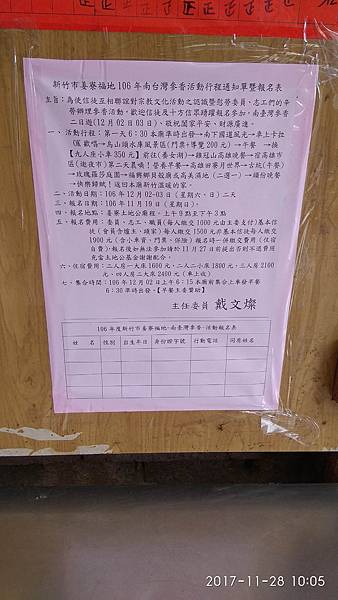 新竹市姜寮福地106年南台灣參香活動行程通知單暨報名表
主旨：為使信徒互相聯誼對宗教文化活動之認識暨慰勞委員、志工們的辛
勞辦理參香活動，歡迎信徒及十方信眾踴躍報名參加，南臺灣參香
二日遊(12月02日03日)，敬祝闔家平安、財源廣進。
一、活動行程：第一天6:30本廟準時出發→南下國道風光→車上卡拉
OK歡唱→烏山頭水庫風景區(門票+導覽200元)→午餐→搭
【九人座小車350元】前往(
區(逛夜市)第二天晨喚!營養早餐→高雄
→玫瑰羅莎庭園→福
→快樂賦歸!返回本廟新竹溫暖的家。
二、活動日期：106年12月02-03日(星期六、日)二天
三、報名日期：106年11月19日(星期日)。
四、報名地點：姜寮土地公廟程，上午9點至下午3點
五、報名費用：委員、志工、職員(每人繳交1000元由主委支付)基本信
徒(會員含爐主、頭家)每人繳交1500元非基本信徒每人繳交
1900元(含小車資、門票、保險)報名時一併繳交費用(住宿
自費)報名後如無法參加請於11月27日前提出否則不退費用
充當土地公基金謝謝配合。
六、住宿費用：二人房一大床1600元、二人二小床1800元、三人房2100
元、四人房二大床2400元(車上收)
七、集合時間：106年12月02日上午6:15本廟前集合上車發早餐
6:30準時出發。【早餐主委贊助】
主任委員 戴文燦
106年度新竹市姜寮福地-南臺灣參香-活動報名表
姓 名 性別 出生年日 身份證字號 行動電話 同房姓名
2017-11-28 10:05